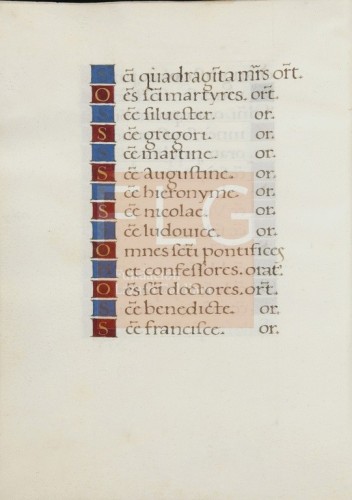 Sc̄i quadragīta mr̄s or̄t.
Oēs sc̄i martyres. or̄t.
Sc̄e siluester. or.
Sc̄e gregori. or.
Sc̄e martine. or.
Sc̄e augustine. or.
Sc̄e hieronyme. or.
Sc̄e nicolae. or.
Sc̄e ludouice. or.
Omnes sc̄ti pontifices
et confessores. orat̄.
Oēs sc̄i doctores. or̄t.
Sc̄e benedicte. or.
Sc̄e francisce. or.
FLG